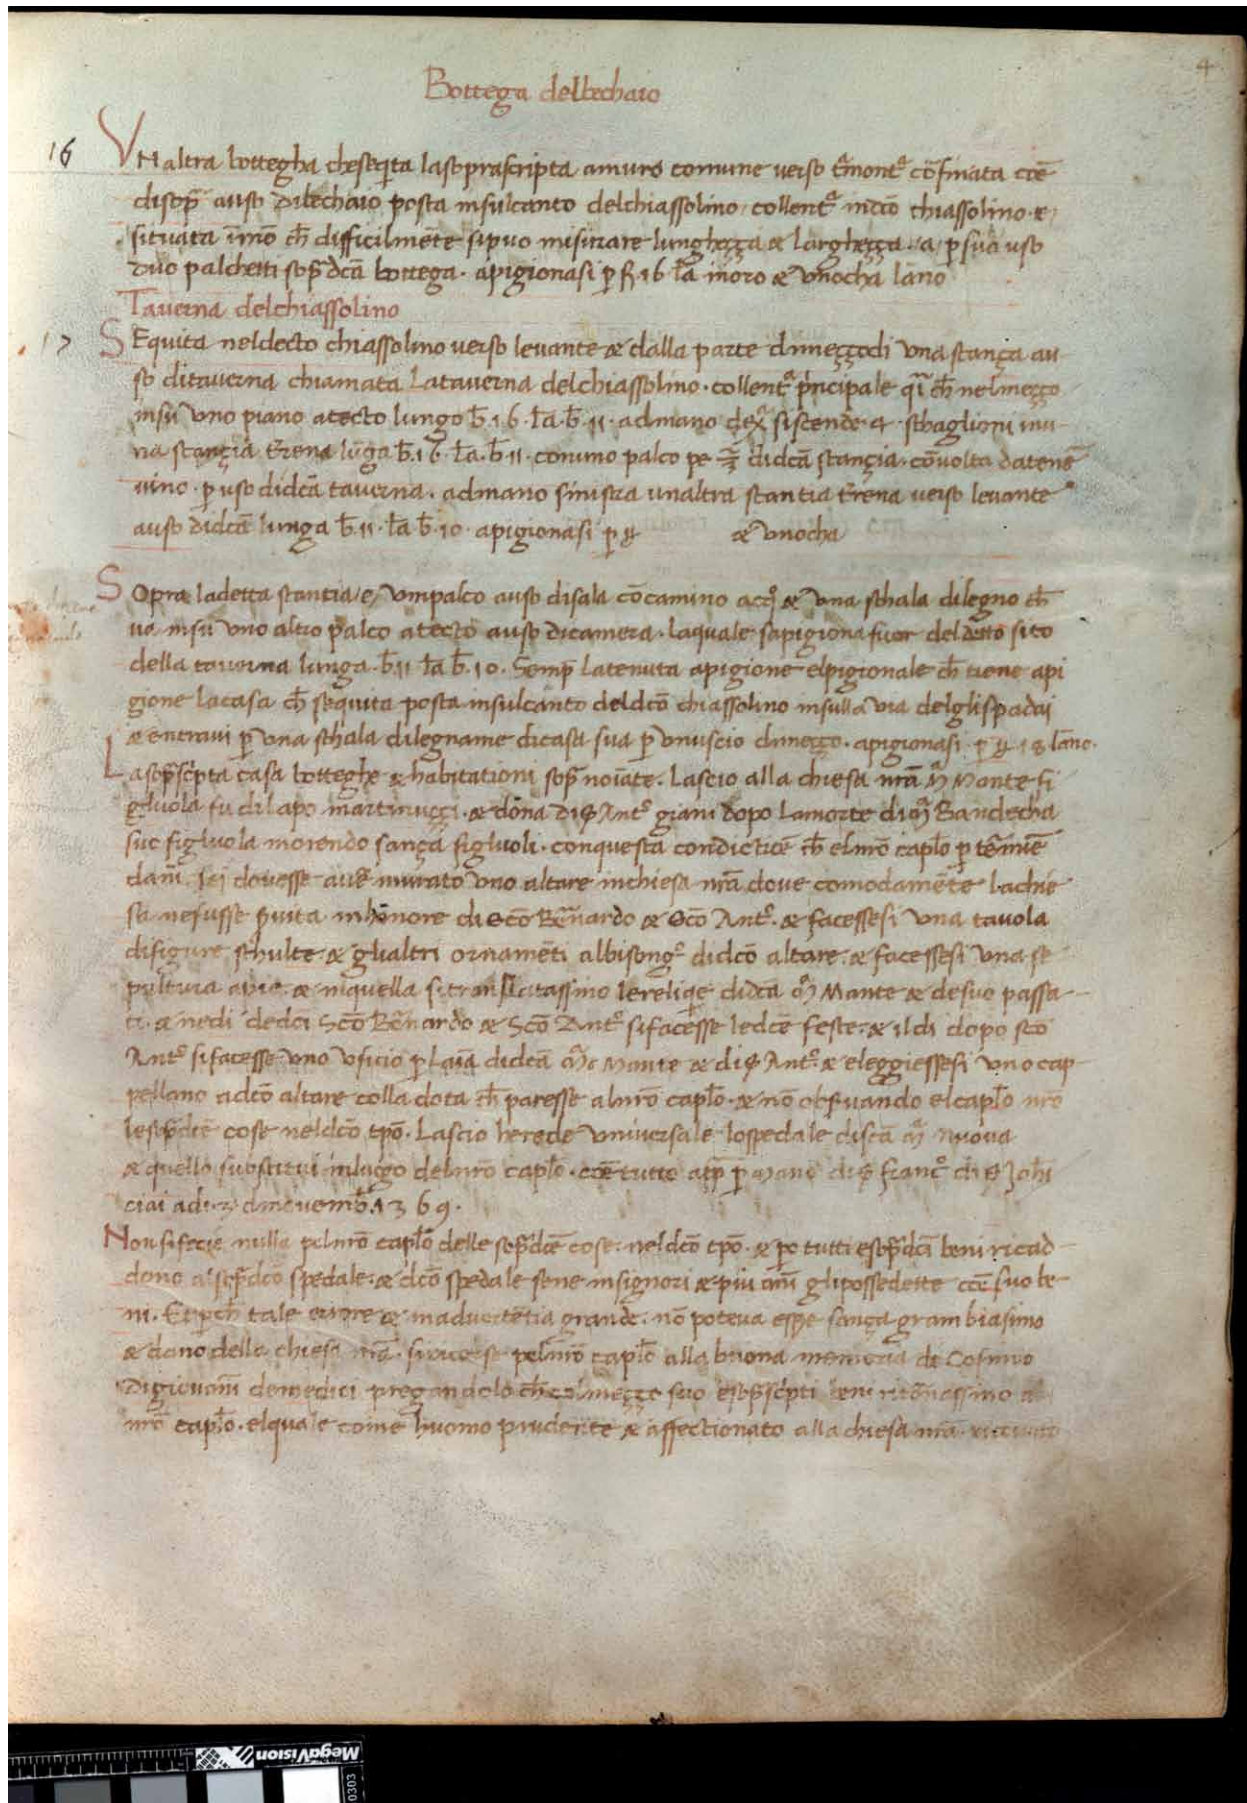 4
Bottega delbechaio
16
VN altra bottegha cheseq̃ta lasoprascripta amuro comune verso t̃mont.ª cõfinata cõe
disop̃ auso dibechaio posta insulcanto delchiassolino collentª indcõ chiassolino e
situata ĩmõ ch̃ difficilmẽte sipuo misurare lungheçça & larghecça a p̱ sua uso
duo palchetti sop̃ dcã bottega. apigionasi p̱ f. 16 lã inoro & vnocha lãno
Taverna delchiassolino
17
SEquita neldecto chiassolino verso levante & dalla parte dimeççodi vna stança au-
so ditaverna chiamata Lataverna delchiassolino. collentª p̃ncipale ch̃ nelmeçço
insũ vno piano atecto lungo b̃.16. lã.b̃.11. admano dexª siscende. 4. schaglioni inu-
na stançia t̃rena lũga b̃.16. lã.b̃.11. conuno palco pe didcã stançia. cõvolta datenẽ
vino. p̱ uso didcã taverna. admano sinistra unaltra stantia t̃rena verso levante
auso didcã lunga b̃.11. lã b̃.10. apigionasi p̱ & vnocha
SOpra ladetta stantia/e/ vmpalco auso disala cõcamino & vna schala dilegno ch̃
va insu vno altro palco atecto auso dicamera. laquale sapigiona fuor deldetto sito
della taverna lunga. b̃.11 lã b̃.10. Semp̃ latenuta apigione elpigionale ch̃ tiene api
gione lacasa ch̃ sequita posta insulcanto deldcõ chiassolino insulla via delglispadai
& entravi p̱ vna schala dilegname dicasa sua p̱ vnuscio dimeçço. apigionasi p̱ 18 lãno.
Lasop̃scĩpta casa botteghe & habitationi sop̃ noĩate. Lascio alla chiesa nrã Mª Mante fi
gluola fu dilapo martinucci. & dõna di S Antº giani dopo lamorte di Mª Bandecha
sue figluola morendo sança figluoli. conquesta condictiõe ch̃ elnrõ caplõ p̱ tẽmie
dãni sei dovesse avẽ murato vno altare inchiesa nrã dove comodamẽte lachie
sa nefusse s̃vita inhonore di Scõ Bẽrnardo & Scõ Antº. & facessesi vna tavola
disigure schulte & glialtri ornamẽti albisongº didcõ altare. & facessesi vna se
poltura & inquella sitranslatassino lereliq̃e didca Mª Mante & desuo passa-
ti. & nedi dedci Scõ Bẽrnardo & Scõ Antº sifacesse ledcẽ feste. & ildi dopo sco
Antº sifacesse vno vficio p̱ laĩa didcã Mª Mante & di S Antº. & eleggiessesi vno cap-
pellano adcõ altare colla dota ch̃ paresse alnrõ caplõ. & nõ obs̃vando elcaplõ nrõ
lesop̃dcẽ cose neldcõ tpõ. Lascio herede vniversale lospedale discã Mª Nuova
& quello substitui inluogo delnrõ caplõ. cõe tutto p̱ mano di S Francº di S Johĩ
ciai adi.3 dinovemb̃.1369.
Nonsifecie nulla pelnrõ caplõ delle sop̃dcẽ cose. neldcõ tpõ. & po tutti esop̃dcã beni ricad-
dono alsop̃dcõ spedale. & dcõ spedale sene insignori & piu ãni glipossedette cõe suo be-
ni. Et p̱ch̃ tale errore & inadvertẽtia grande. nõ poteva esse sança gram biasimo
& dano della chiesa nrã. siricorse pelnrõ caplõ alla buona memoria di Cosimo
digiovãni demedici pregandolo ch̃ colmeçço suo esop̃scĩpti beni ritõrnassino al
nrõ caplõ. elquale come huomo prudente & affectionato alla chiesa nrã